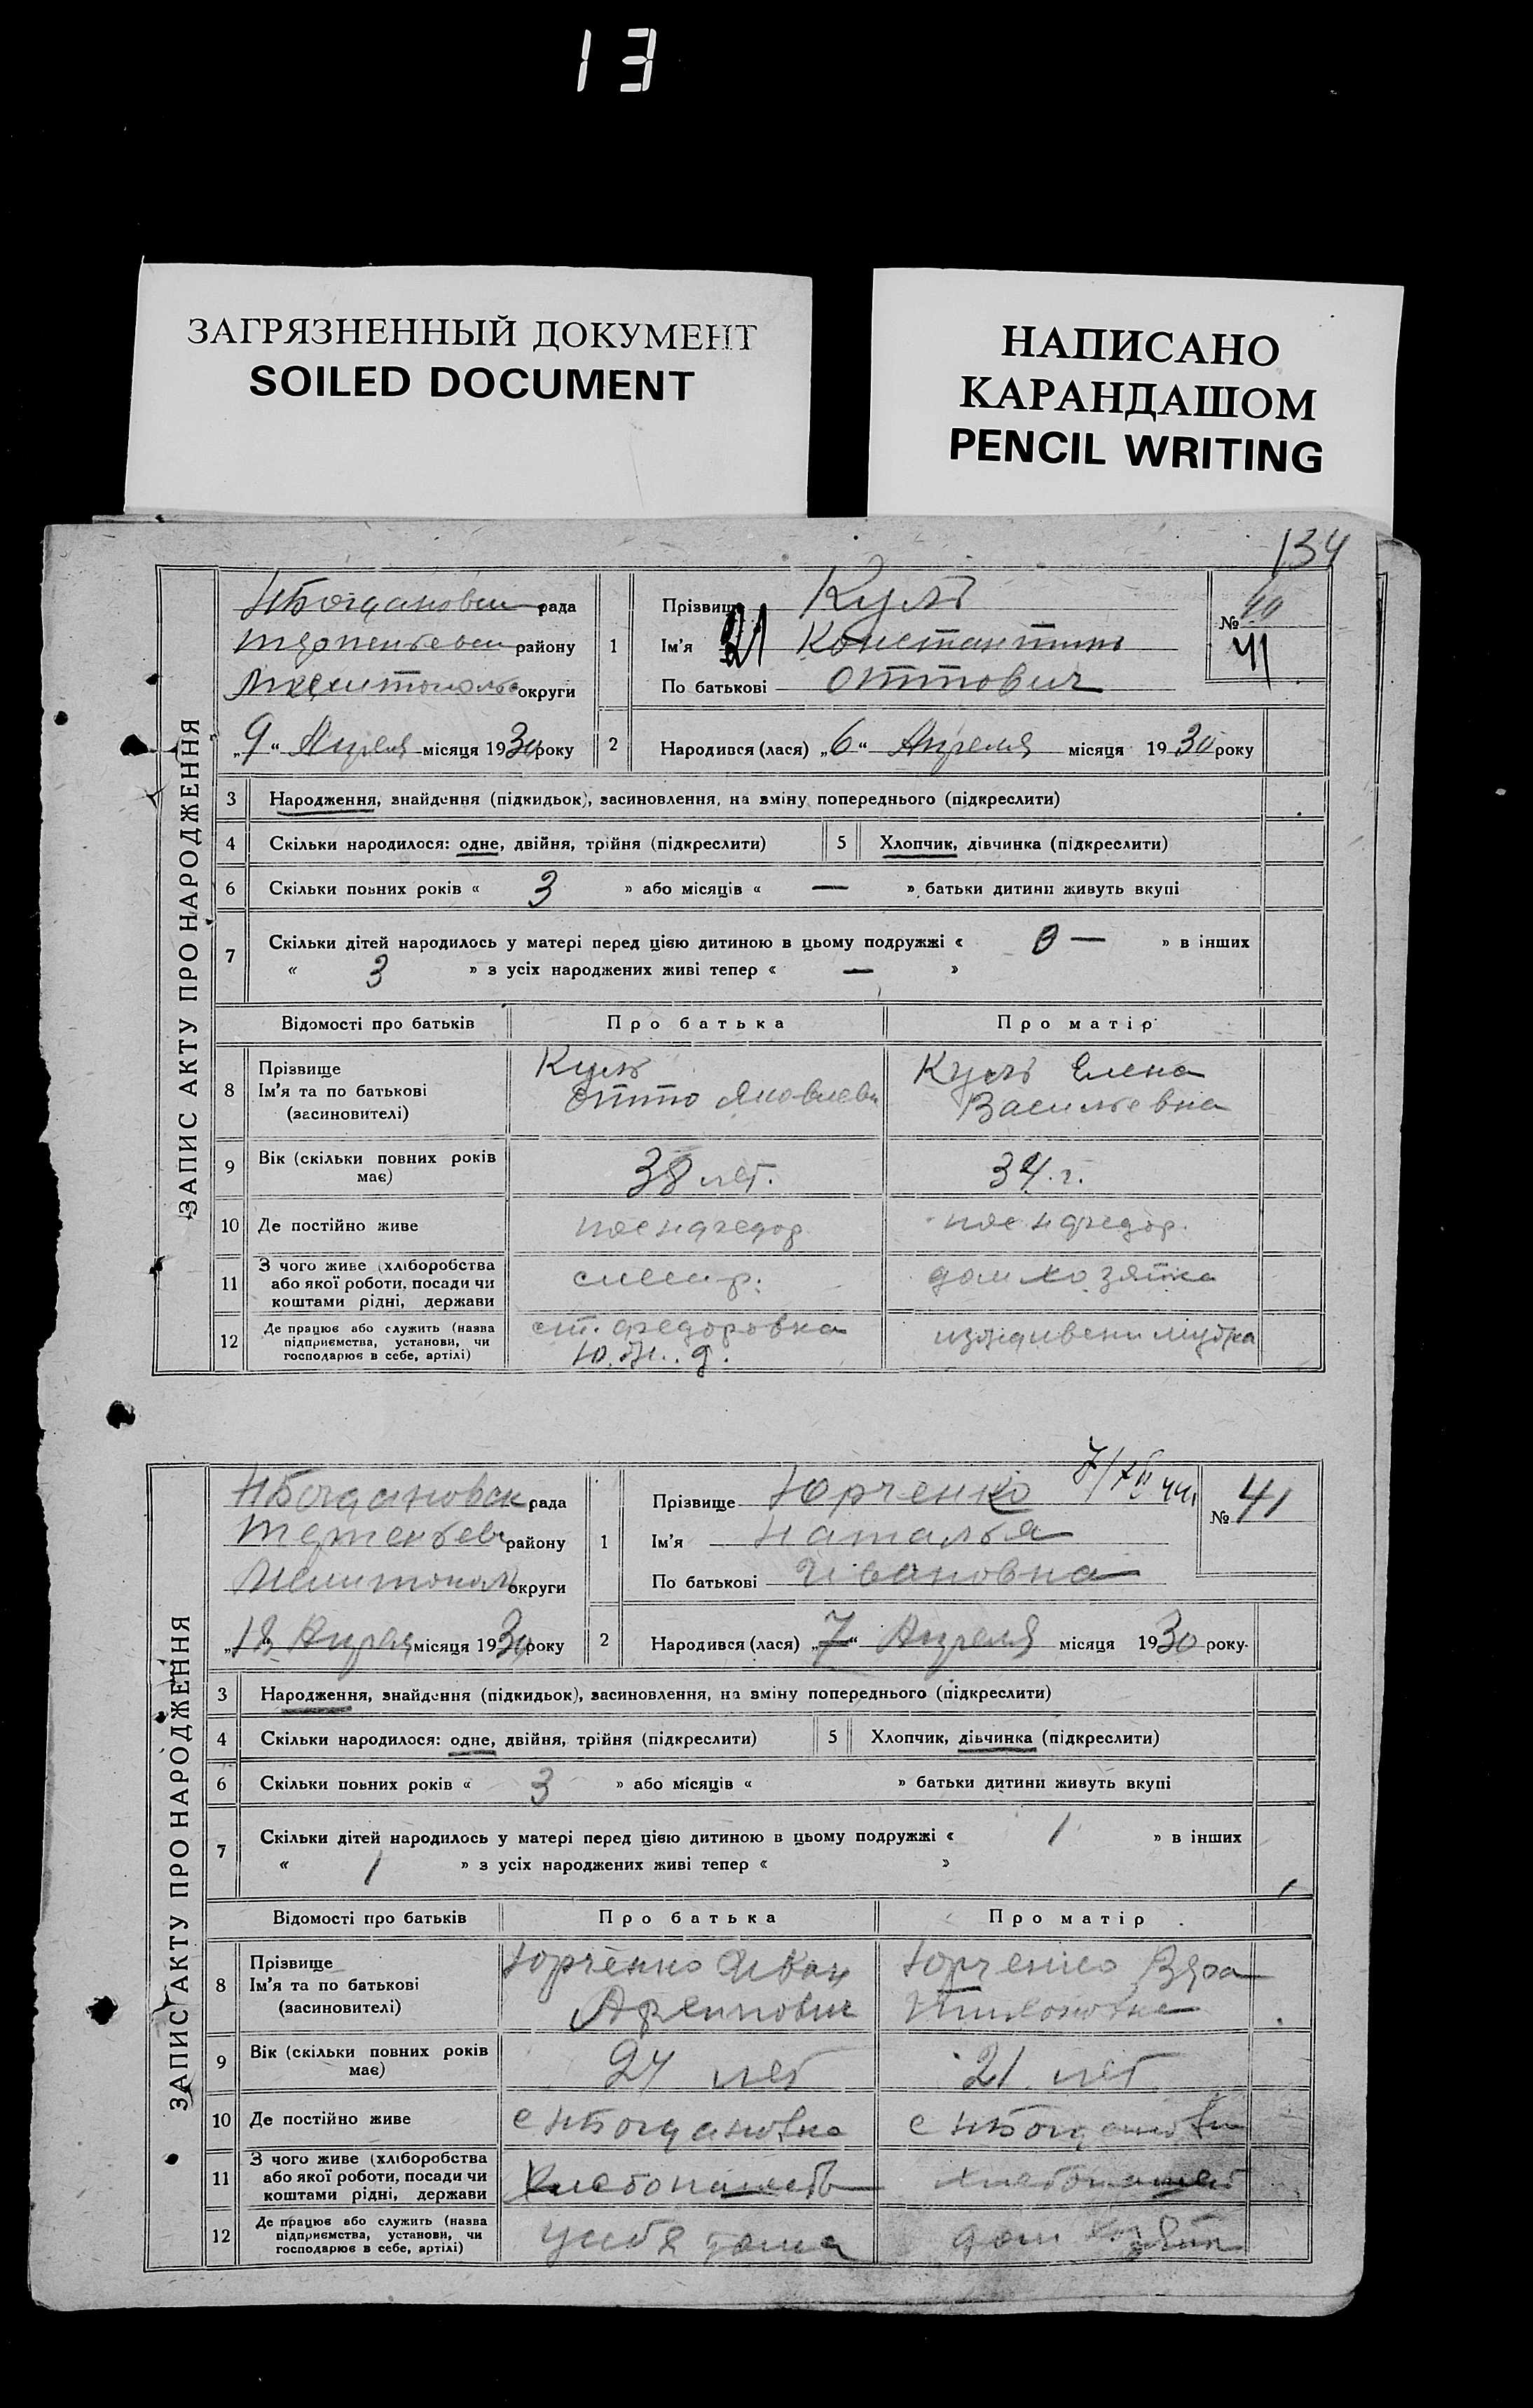 13
ЗАГРЯЗНЕННЫЙ ДОКУМЕНТ
SOILED DOCUMENT
НАПИСАНО
КАРАНДАШОМ
PENCIL WRITING
134
ЗАПИС АКТУ ПРО НАРОДЖЕННЯ
НБогдановск рада
району
округи
„9“ Апреля місяця 1930 року
1
Прізвище Куль
Ім'я 21 Константин
По батькові Оттович
№ 40
41
2
Народився (лася) „6“ Апреля місяця 1930 року
3 Народження, знайдення (підкидьок), засиновлення, на зміну попереднього (підкреслити)
4 Скільки народилося: одне, двійня, трійня (підкреслити)
5 Хлопчик, дівчинка (підкреслити)
6 Скільки повних років « 3 » або місяців « — » батьки дитини живуть вкупі
7 Скільки дітей народилось у матері перед цією дитиною в цьому подружжі « — » в інших
« 3 » з усіх народжених живі тепер « — »
Відомості про батьків Про батька Про матір
8 Прізвище
Ім'я та по батькові
(засновителі)
Куль
Отто Яковлеви
Куль Елена
Васильевна
9 Вік (скільки повних років
має)
38 лет.
34 г.
10 Де постійно живе
пос нфедор
пос нфедор.
11 З чого живе (хліборобства
або якої роботи, посади чи
коштами рідні, держави
дом хозяйка
12 Де працює або служить (назва
підприємства, установи, чи
господарює в себе, артілі)
ст. Федоровка
Ю. Ж. д.
ЗАПИС АКТУ ПРО НАРОДЖЕННЯ
НБогдановск рада
району
Мелитопол округи
„18“ Апреля місяця 1930 року
1
Прізвище Юрченко
Ім'я Наталья
По батькові Ивановна
№ 41
2
Народився (лася) „7“ Апреля місяця 1930 року
3 Народження, знайдення (підкидьок), засиновлення, на зміну попереднього (підкреслити)
4 Скільки народилося: одне, двійня, трійня (підкреслити)
5 Хлопчик, дівчинка (підкреслити)
6 Скільки повних років « 3 » або місяців « » батьки дитини живуть вкупі
7 Скільки дітей народилось у матері перед цією дитиною в цьому подружжі « 1 » в інших
« 1 » з усіх народжених живі тепер « »
Відомості про батьків Про батька Про матір
8 Прізвище
Ім'я та по батькові
(засиновителі)
Юрченко Иван
Юрченко Вера
9 Вік (скільки повних років
має)
24 лет
21 лет
10 Де постійно живе
с НБогдановка
с НБогдановка
11 З чого живе (хліборобства
або якої роботи, посади чи
коштами рідні, держави
12 Де працює або служить (назва
підприємства, установи, чи
господарює в себе, артілі)
дом хозяйк